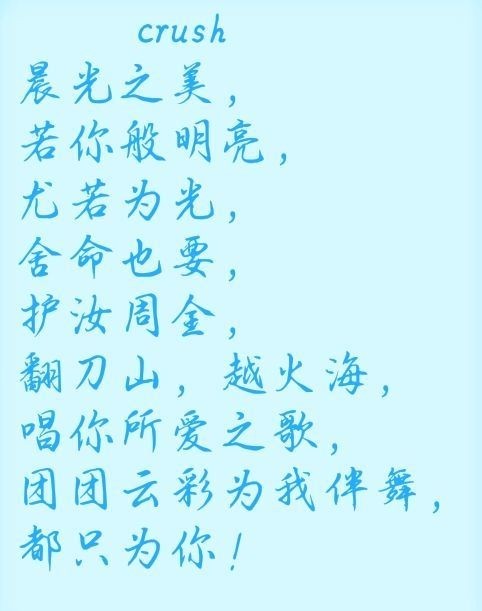 crush
晨光之美，
若你般明亮，
尤若为光，
舍命也要，
护汝周全，
翻刀山，越火海，
唱你所爱之歌，
团团云彩为我伴舞，
都只为你！